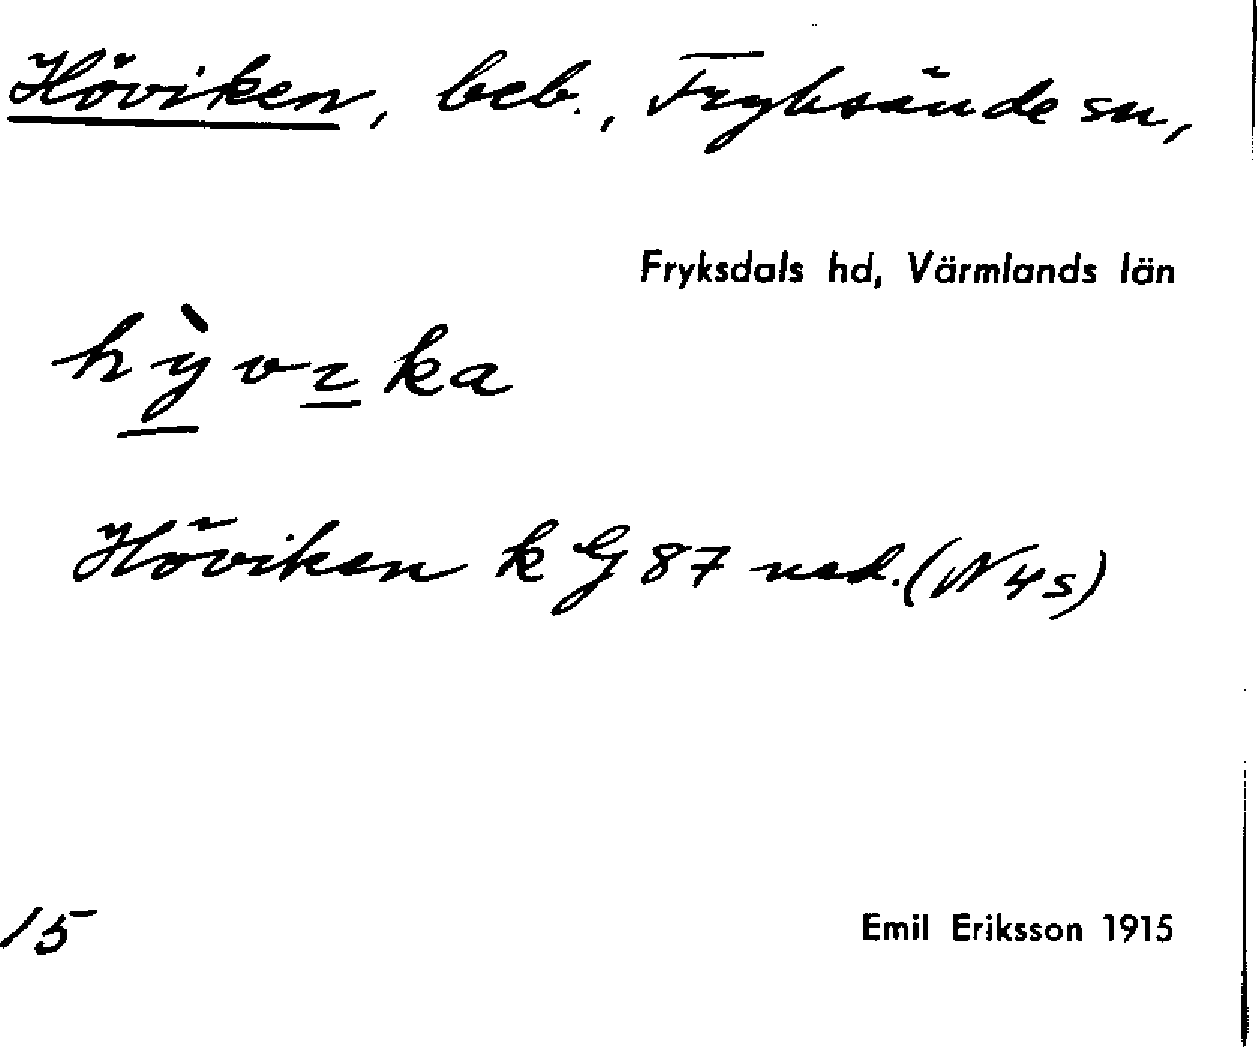 Höviken, beb., Fryksände sn,
Fryksdals hd, Värmlands län
hỳ̲vɪ̲ka
Höviken k G 87 ned. (N 4 s)
15
Emil Eriksson 1915